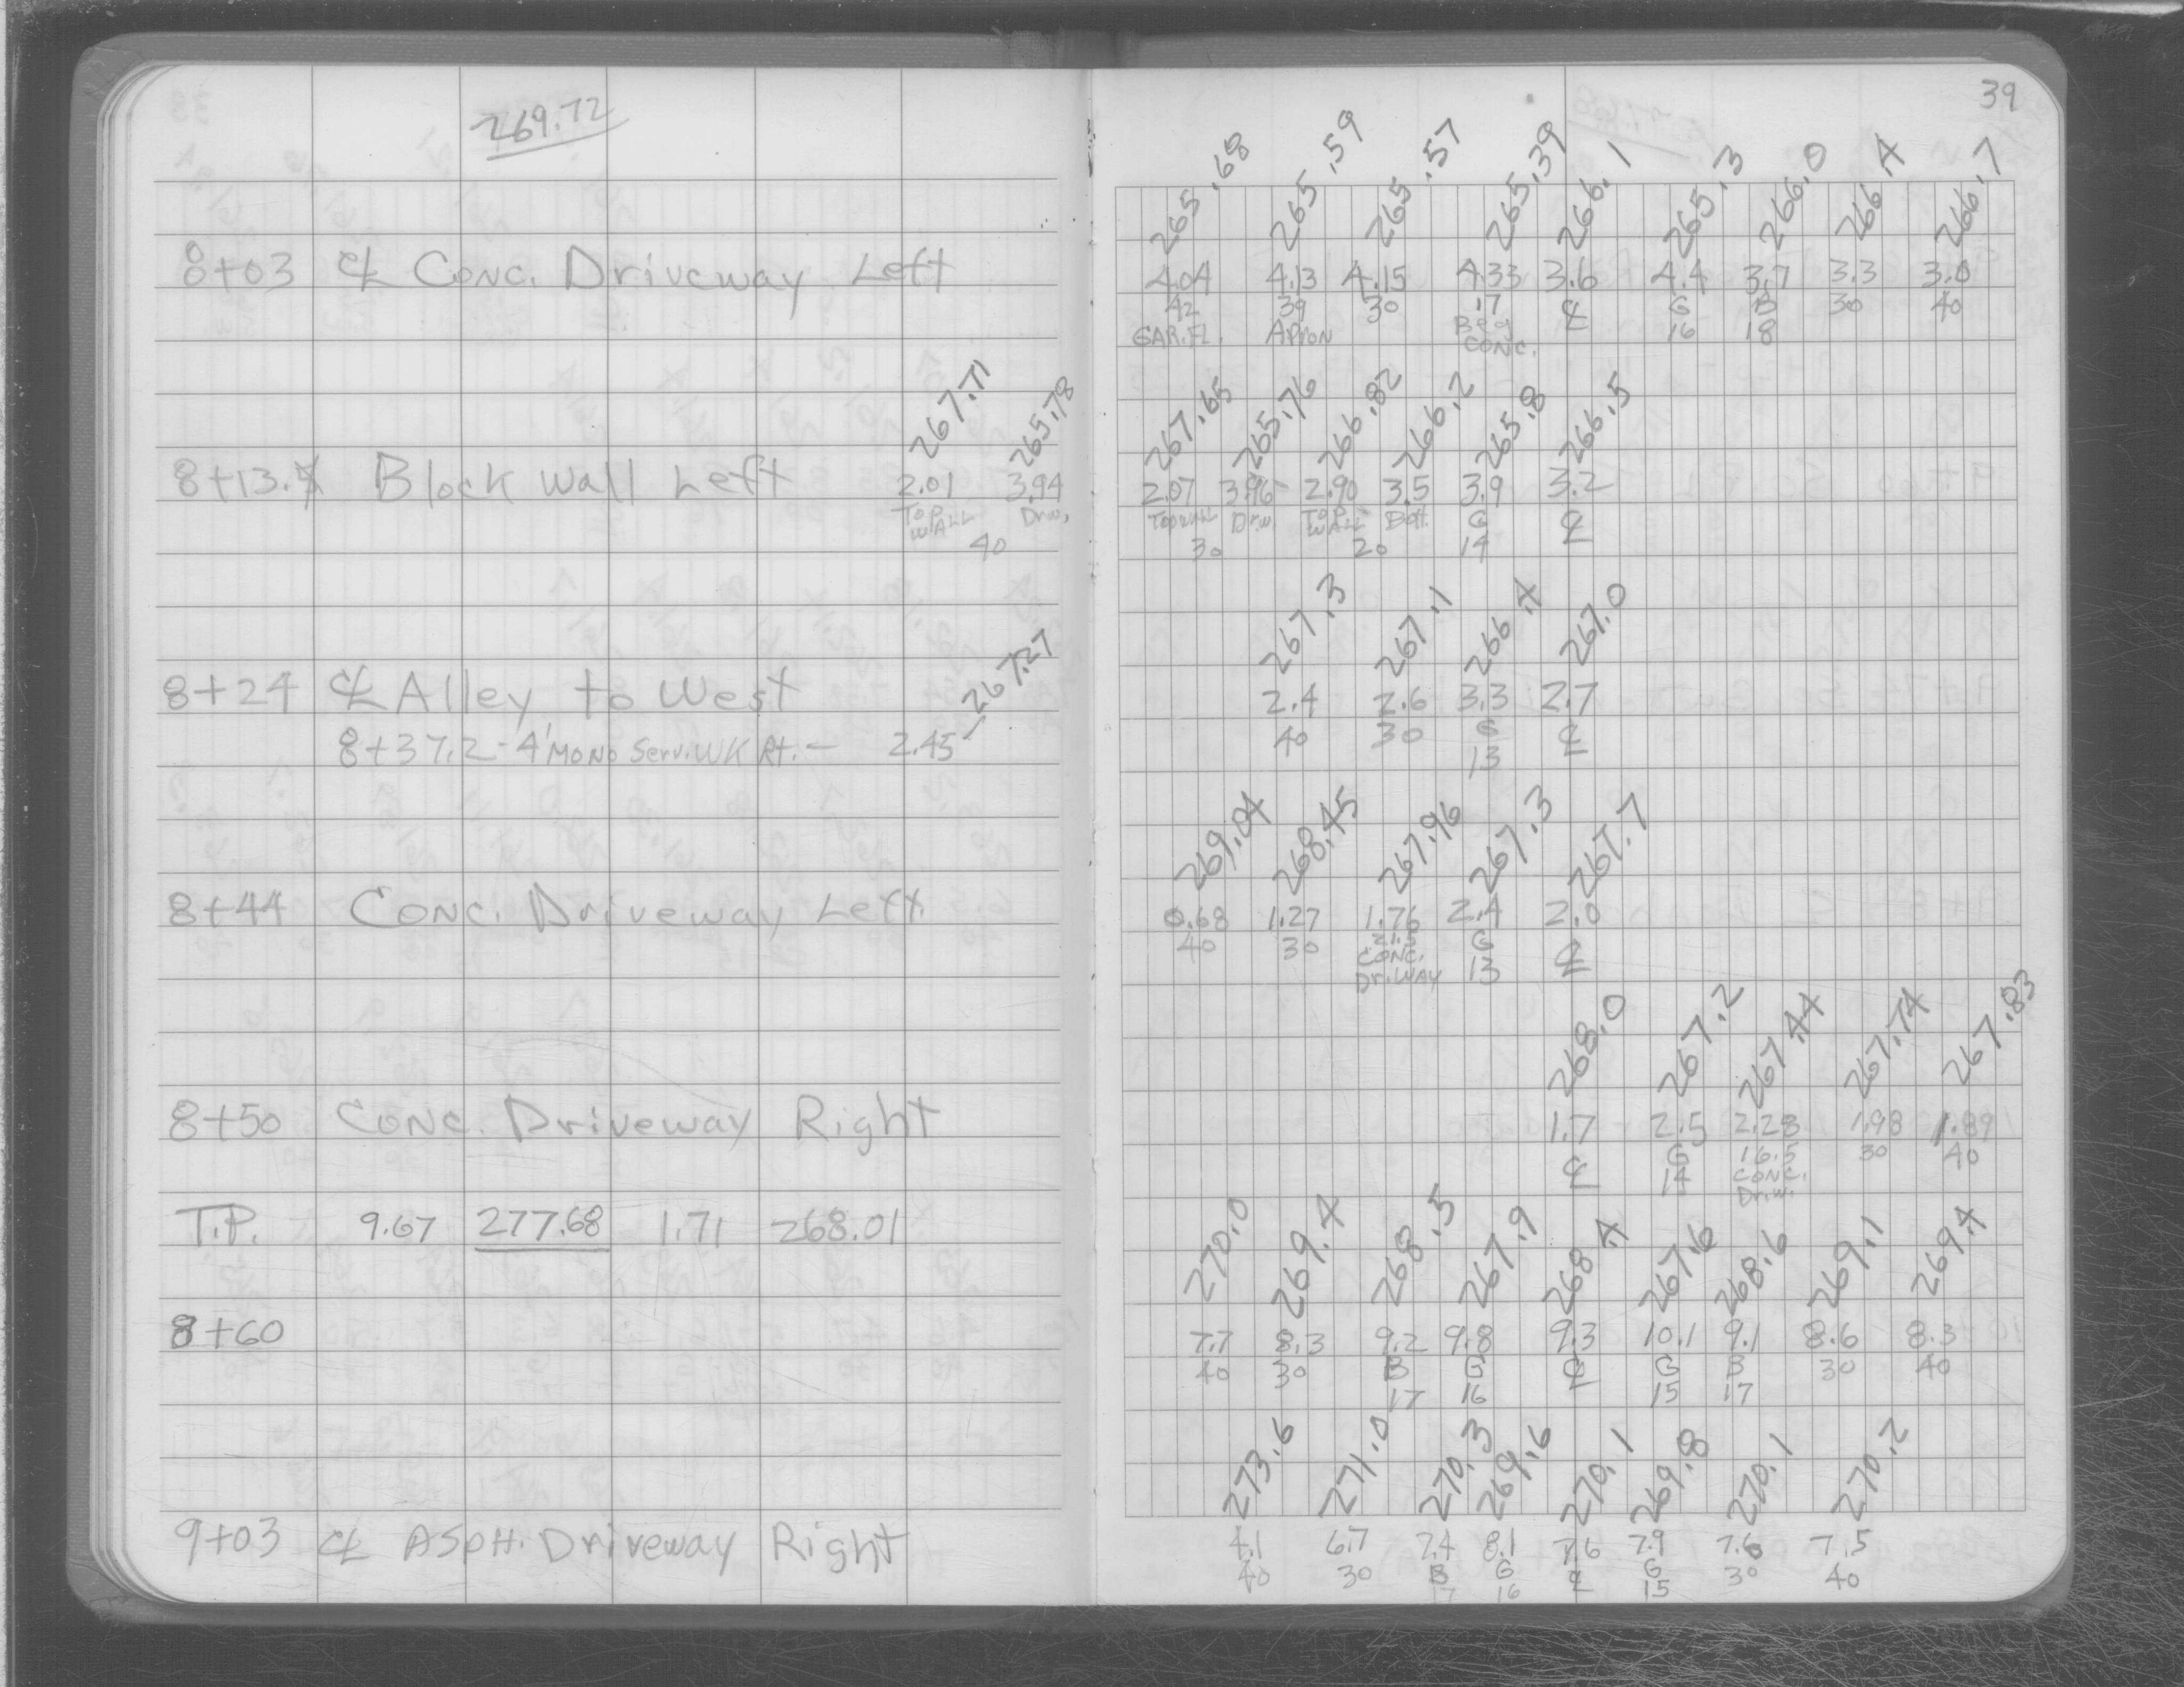 269.72
8+03 ℄ Conc. Driveway Left
267.71 265.78
8+13.5 Block Wall Left 2.01 3.94
Top WALL Driv.
40
8+24 ℄ Alley to West
267.27
8+37.2 - 4' MONO Serv. WK Rt. - 2.45
8+44 Conc. Driveway Left
8+50 Conc. Driveway Right
T.P. 9.67 277.68 1.71 268.01
8+60
9+03 ℄ ASPH. Driveway Right
39
265.68 265.59 265.57 265.39 266.1 265.3 266.0 266.4 266.7
4.04 4.13 4.15 4.33 3.6 4.4 3.7 3.3 3.0
42 39 30 17 ℄ G B 30 40
GAR.FL. APRON Beg CONC. 16 18
267.65 265.76 266.82 266.2 265.8 266.5
2.07 3.96 2.90 3.5 3.9 3.2
Top WALL Driv. Top WALL Bott. G ℄
30 20 14
267.3 267.1 266.4 267.0
2.4 2.6 3.3 2.7
40 30 G ℄
13
269.04 268.45 267.96 267.3 267.7
0.68 1.27 1.76 2.4 2.0
40 30 21.5 G ℄
CONC. 13
Dr.WAY
268.0 267.2 267.44 267.74 267.83
1.7 2.5 2.28 1.98 1.89
℄ G 16.5 30 40
14 CONC.
Driv.
270.0 269.4 268.5 267.9 268.4 267.6 268.6 269.1 269.4
7.7 8.3 9.2 9.8 9.3 10.1 9.1 8.6 8.3
40 30 B G ℄ G B 30 40
17 16 15 17
273.6 271.0 270.3 269.6 270.1 269.8 270.1 270.2
4.1 6.7 7.4 8.1 7.6 7.9 7.6 7.5
40 30 B G ℄ G 30 40
17 16 15